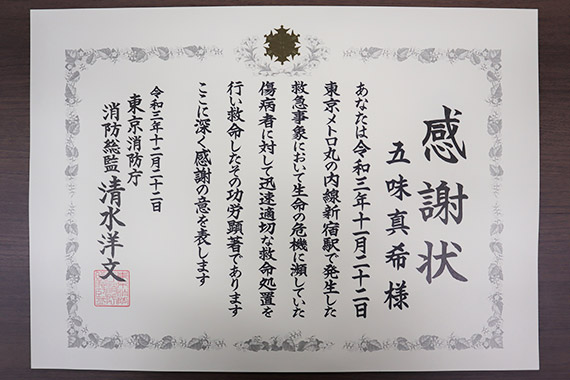 感謝状
五味真希様
あなたは令和三年十一月二十二日
東京メトロ丸の内線新宿駅で発生した
救急事象において生命の危機に瀕していた
傷病者に対して迅速適切な救命処置を
行い救命したその功労顕著であります
ここに深く感謝の意を表します
令和三年十二月二十二日
東京消防庁
消防総監 清水洋文